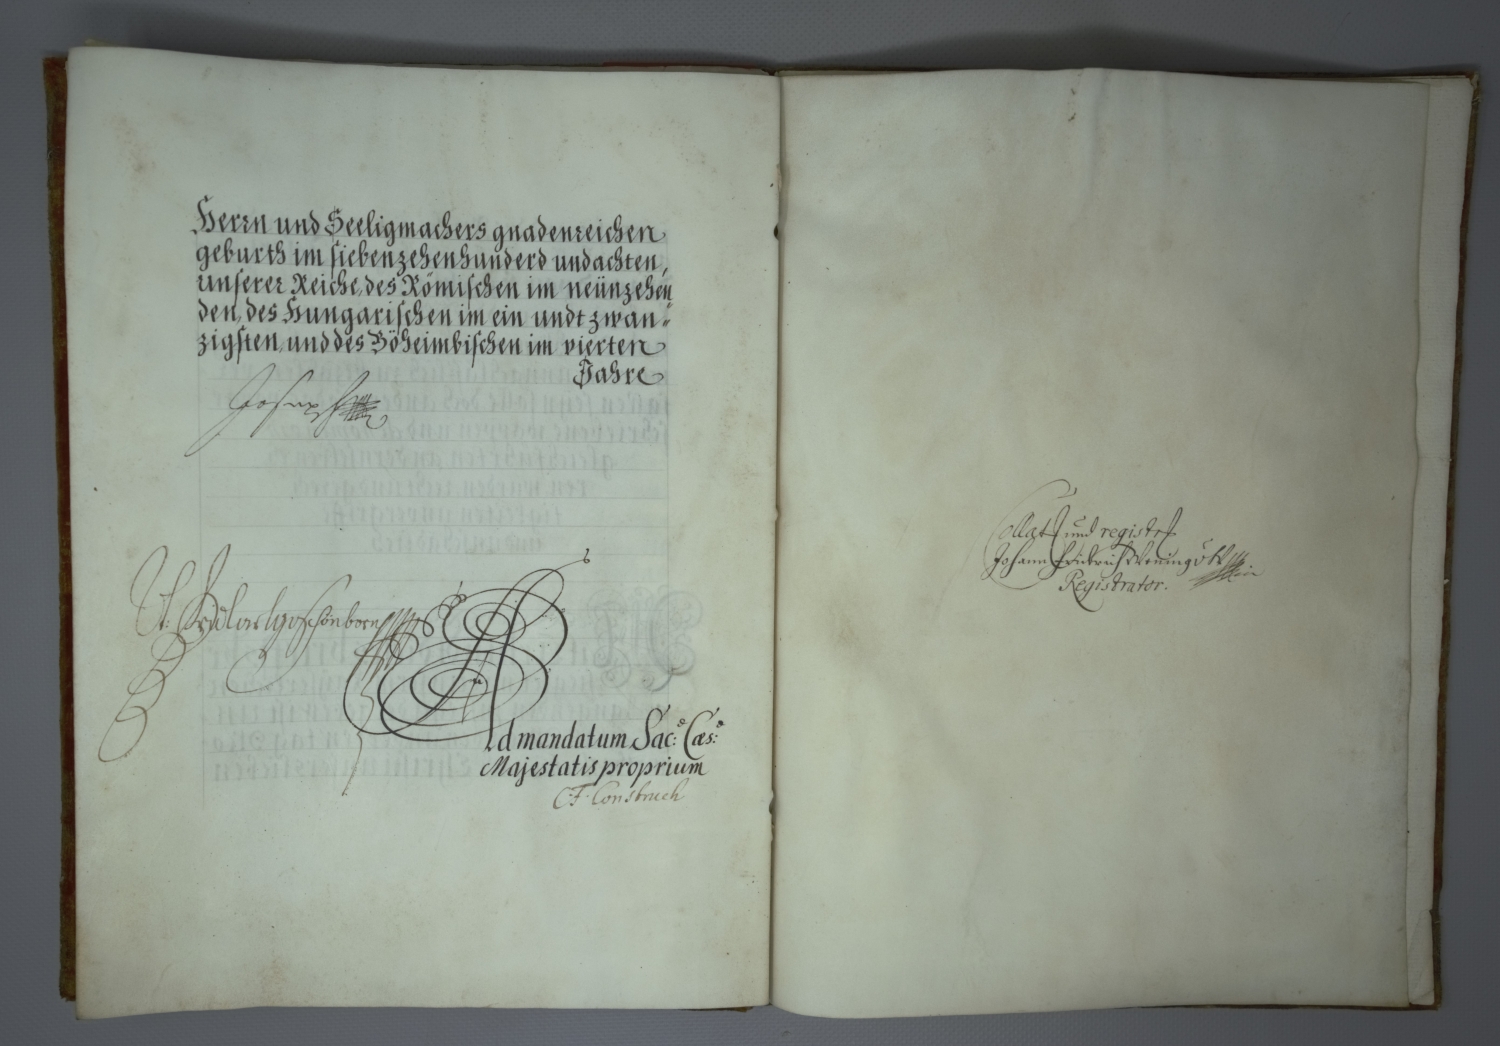 Herrn und Seeligmachers gnadenreichen
geburth im siebenzehenhunderd und achten,
unserer Reiche, des Römischen im neünzehen
den, des Hungarischen im ein undt zwan„
zigsten, und des Böheimbischen im vierten
Jahre
Joseph
Vt. Fridlarlhgoschönborn
Ad mandatum Sac: Cæs:
Majestatis proprium
C. F. Consbruch
Collat und registrt
Johann Friderich
Registrator.